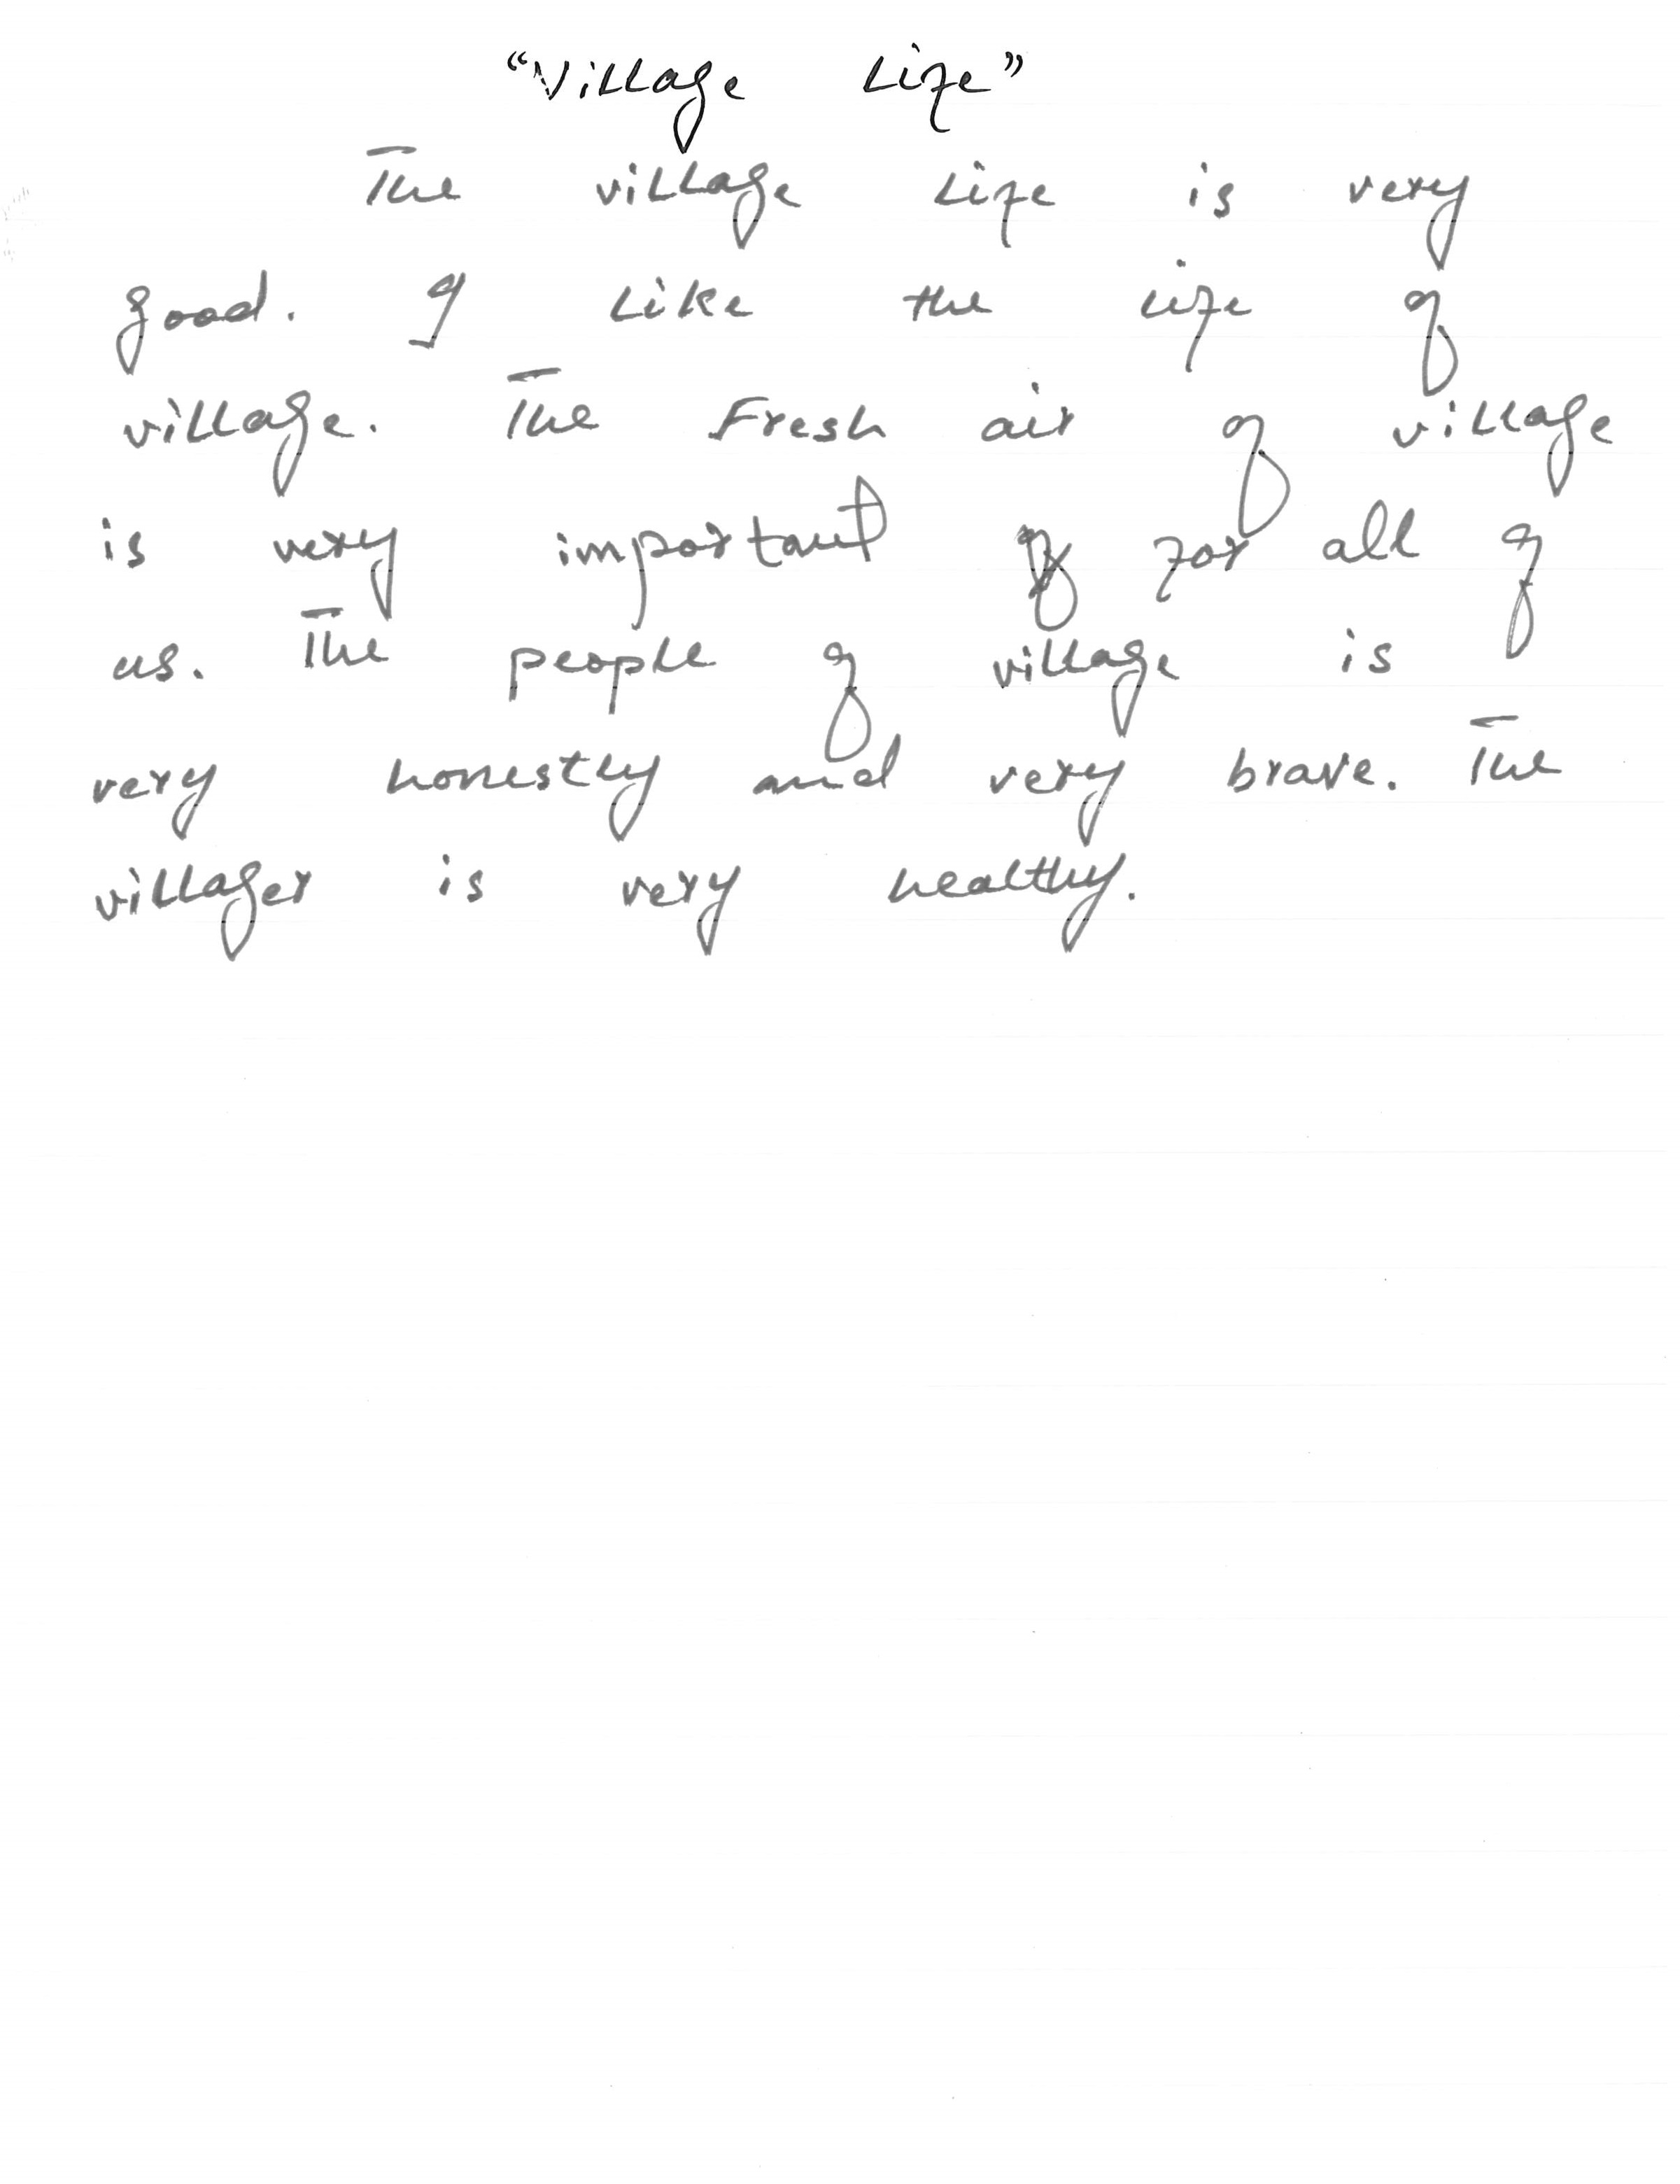 "Village Life"
The village life is very
good. I like the life of
village. The Fresh air of village
is very important for all of
us. The people of village is
very honestly and very brave. The
villager is very healthy.